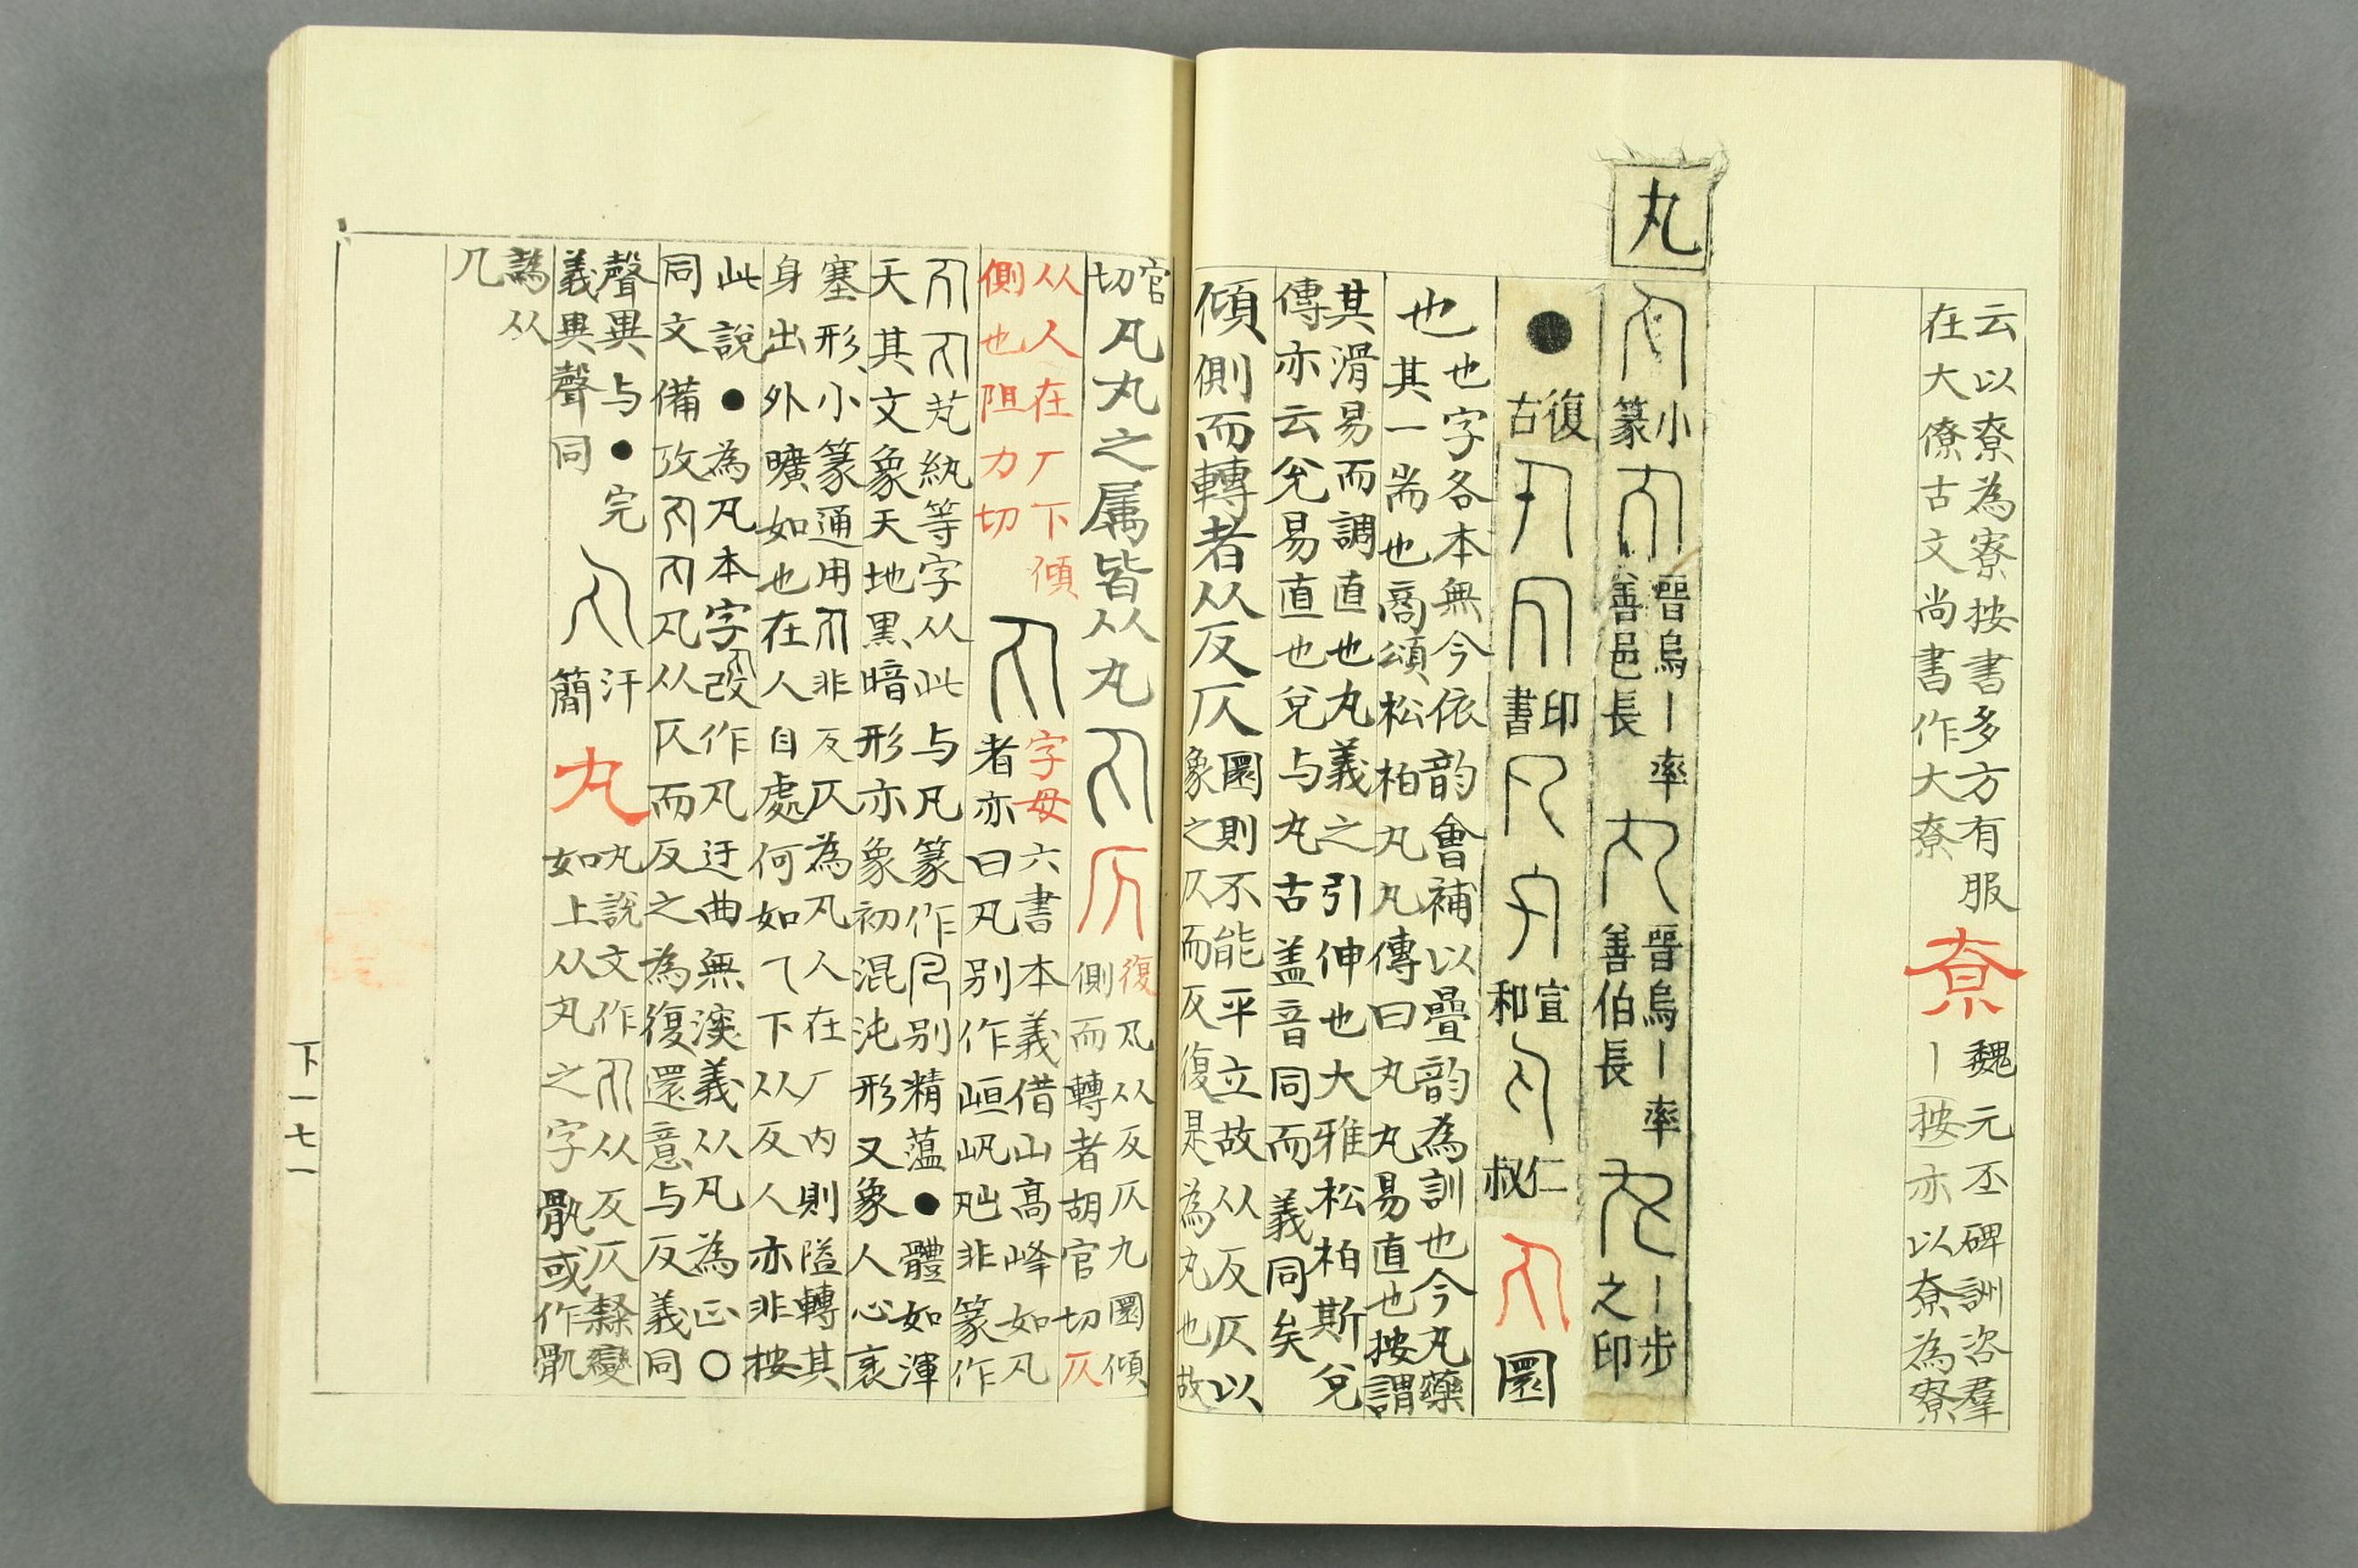 云以尞為寮按書多方有服
在大僚古文尚書作大尞
尞
魏元丕碑訓咨羣
丨按亦以尞為寮
丸
小篆
晉烏丨率善邑長
晉烏丨率善伯長
丨步之印
●
復古
印書
宣和
仁叔
圜
也
也字各本無今依韵會補以疊韵為訓也今丸藥
其一耑也商頌松柏丸丸傳曰丸丸易直也按謂
其滑易而調直也丸義之引伸也大雅松柏斯兌
傳亦云兌易直也兌与丸古蓋音同而義同矣
傾側而轉者从反仄
圜則不能平立故从反仄以
象之仄而反復是為丸也故
官切
凡丸之属皆从丸
復
凡从反仄九圜傾
側而轉者胡官切仄
从人在厂下傾
側也阻力切
字母六書本義借山高峰如凡
者亦曰凡别作峘㞩非篆作
芄紈等字从此与凡篆作别精藴●體如渾
天其文象天地黒暗形亦象初混沌形又象人心衷
塞形小篆通用非反仄為凡人在厂内則隘轉其
身出外曠如也在人自處何如下从反人亦非按
此說●為凡本字改作凡迂曲無深義从凡為正○
同文備攷凡从仄而反之為復還意与反義同
聲異与●完
義異聲同
汗簡
丸
丸說文作从反仄隸變
如上从丸之字骩或作骫
譌从
几
下一七一